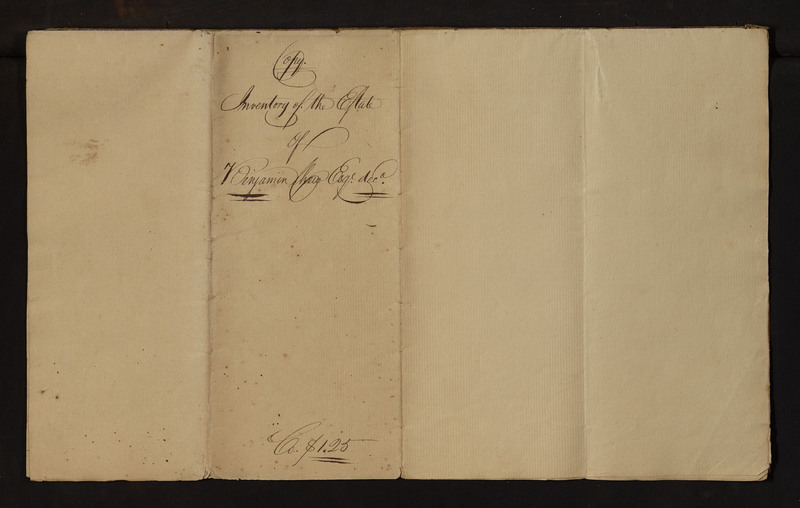 Copy.
Inventory of the Estate
of
Benjamin Esqr. decd.
$1.25